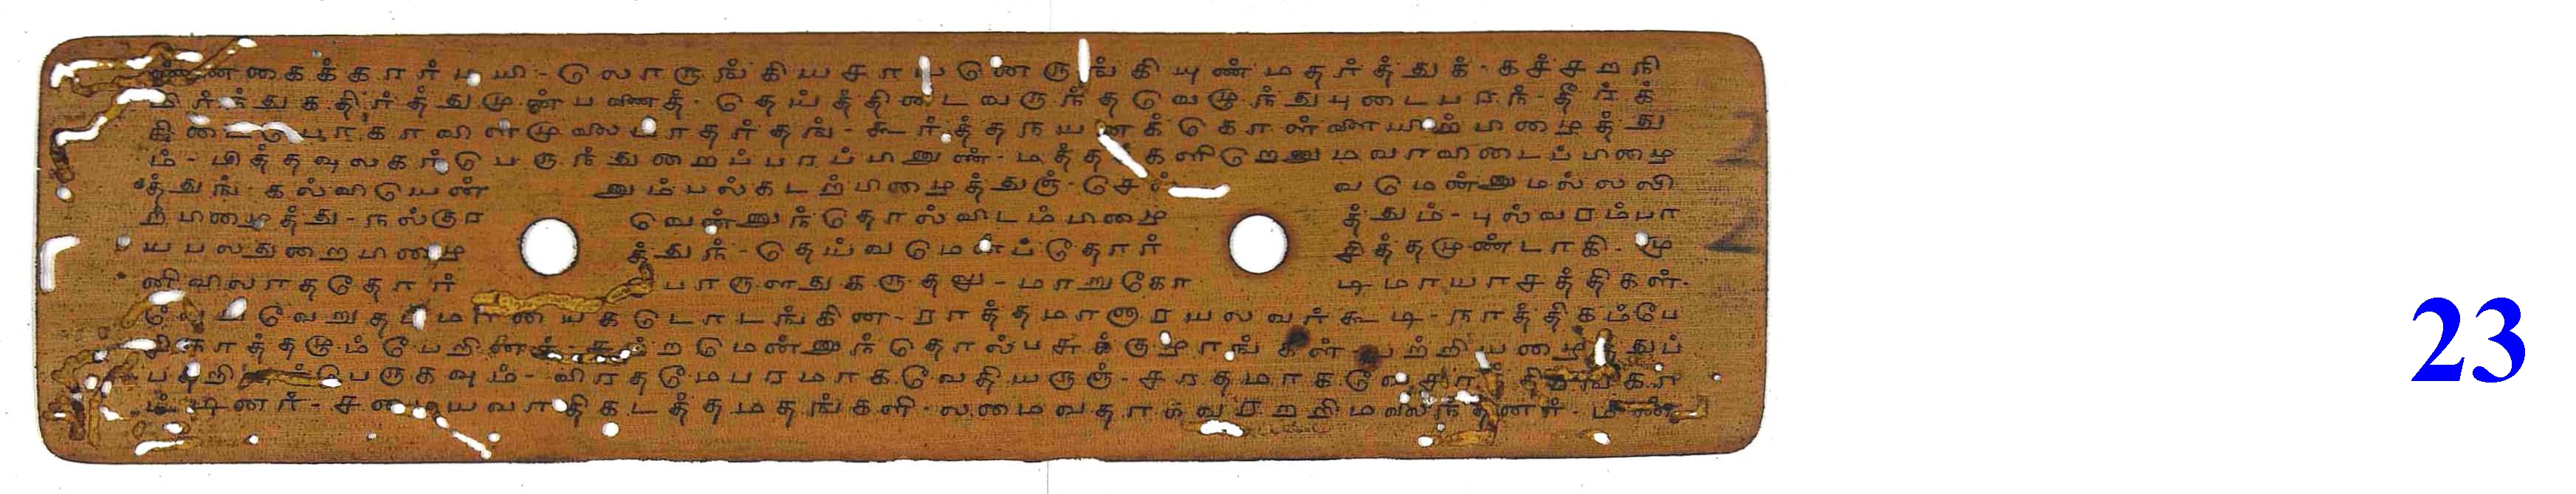 ண்ணகைக்கார்மயி-லொருங்கியசாயனெருங்கியுண்மதர்த்துக்-கச்சறநி
மிர்ந்துகதிர்த்துமுன்பணைத்-தெய்த்திடைவருந்தவெழுந்துபுடைபரந்-தீர்க்
கிடைபோகாவிளமுலைமாதர்தங்-கூர்த்தநயனக்கொள்ளையிற்பிழைத்து
ம்-பித்தவுலகர்பெருந்துறைப்பரப்பினுண்-மத்தக்களிறெனுமவாவிடைப்பிழை
த்துங்-கல்வியென்னும்பல்கடற்பிழைத்துஞ்-செல்வமென்னுமல்லலி
ற்பிழைத்து-நல்குரவென்னுந்தொல்விடம்பிழைத்தும்-புல்வரம்பா
யபலதுறைபிழைத்துந்-தெய்வமென்ப்தோர்சித்தமுண்டாகி-மு
னிவிலாததோர்பொருளதுகருதலு-மாறுகோடிமாயாசத்திகள்-
வேறுவேறுதம்மாயைகடொடங்கின-ராத்தமானாரயலவர்கூடி-நாத்திகம்பே
சிநாத்தழும்பேறினர்-சுற்றமென்னுந்தொல்பசுக்குழாங்கள்பற்றியழைத்துப்
பதறினர்பெருகவும்-விரதமேபரமாகவேதியருஞ்-சரதமாகவேசாத்திரங்கா
ட்டினர்-சமயவாதிகடத்தமதங்களி-லமைவதாகவரற்றிமலைந்தனர்-மிண்
23